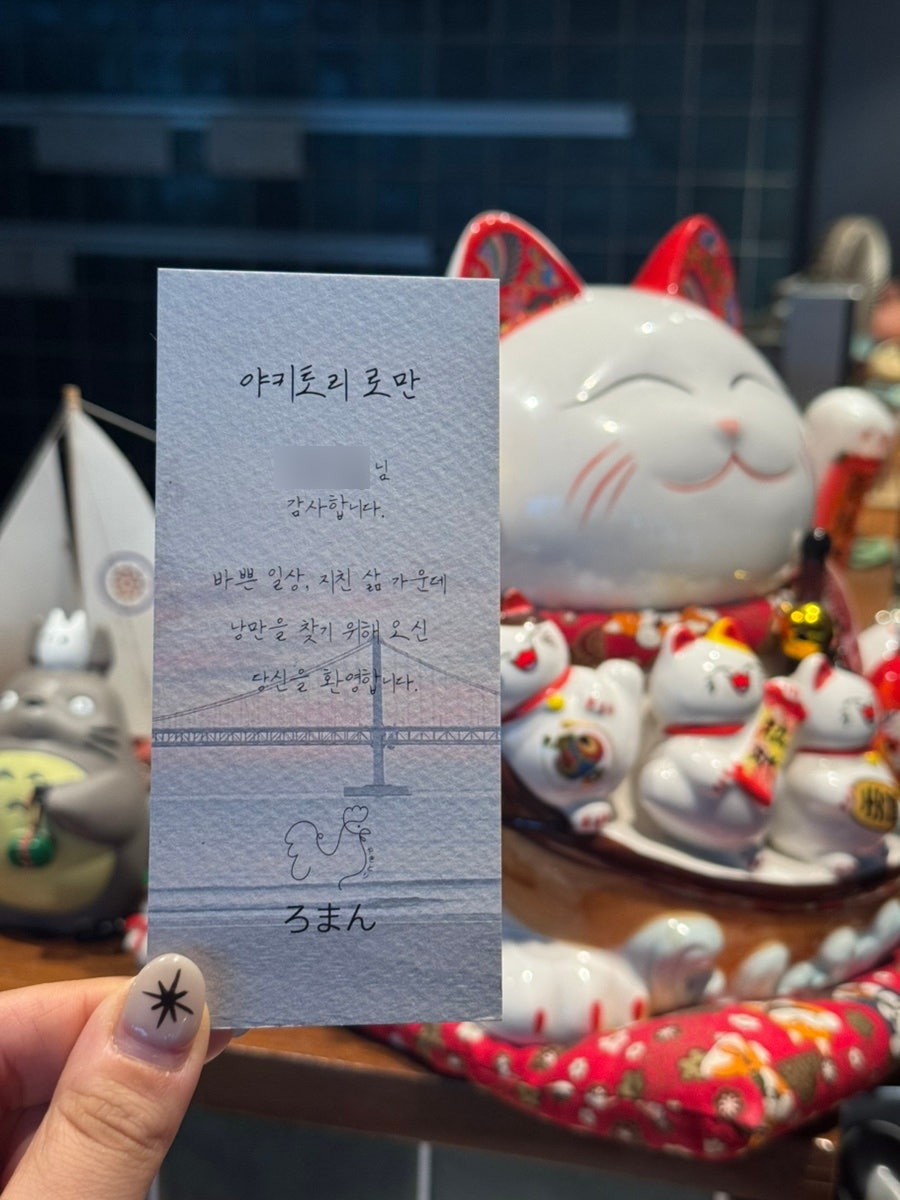 야키토리 로만
님
감사합니다.
바쁜 일상, 지친 삶 가운데
낭만을 찾기 위해 오신
당신을 환영합니다.
ろまん